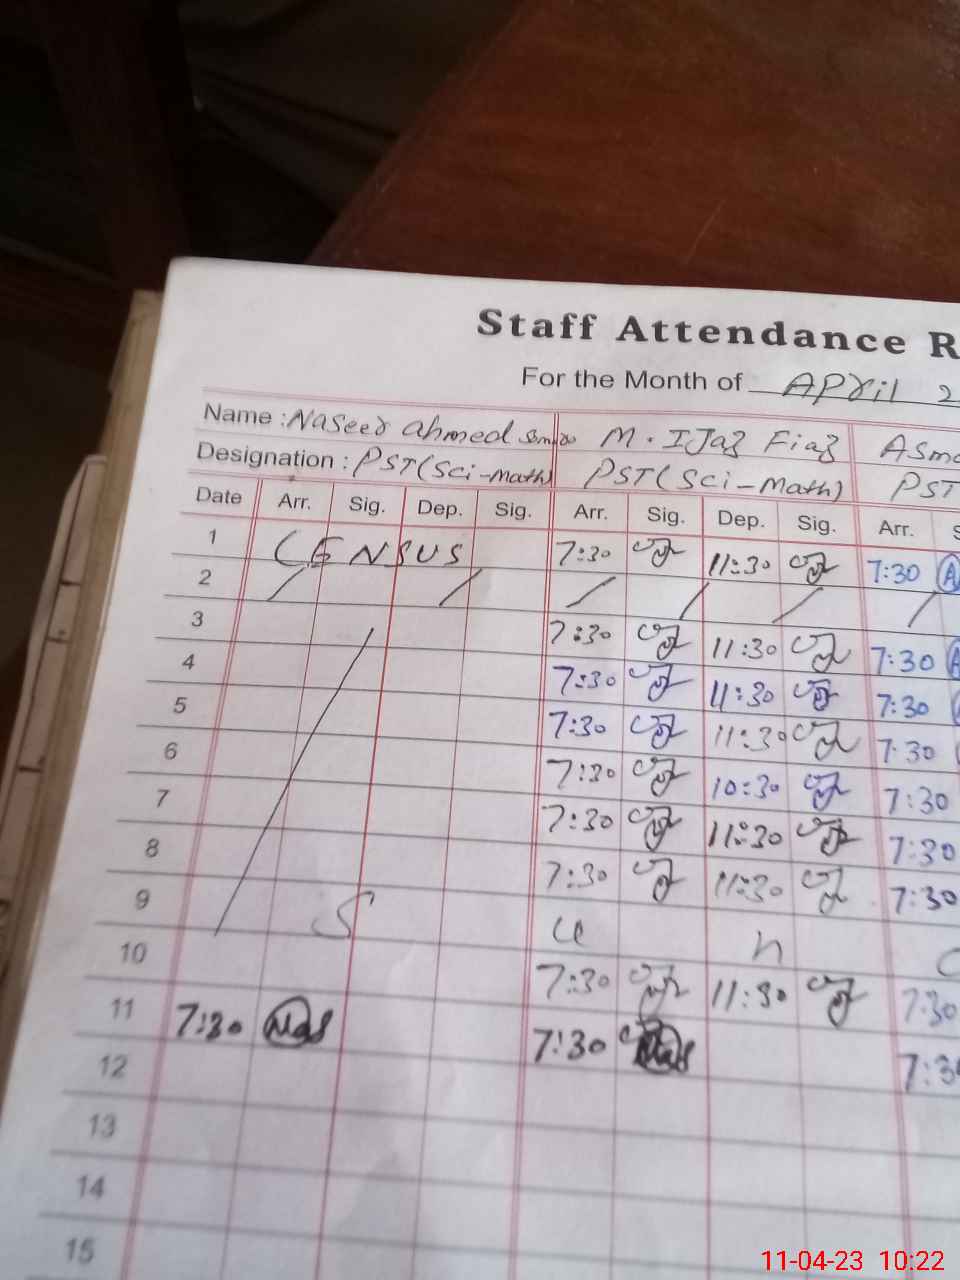 Staff Attendance R
For the Month of April 2
Name : Naseer Ahmed M. Ijaz Fiaz Asma
Designation : PST (Sci-math) PST (Sci-math) PST
Date Arr. Sig. Dep. Sig. Arr. Sig. Dep. Sig. Arr. S
1 CENSUS 7:30 11:30 7:30 A
2
3 7:30 11:30 7:30 A
4 7:30 11:30 7:30
5 7:30 11:30 7:30
6 7:30 10:30 7:30
7 7:30 11:30 7:30
8 7:30 11:30 7:30
9 S u n
10 7:30 11:30 7:30
11 7:30 Nas 7:30 7:3
12
13
14
15
11-04-23 10:22